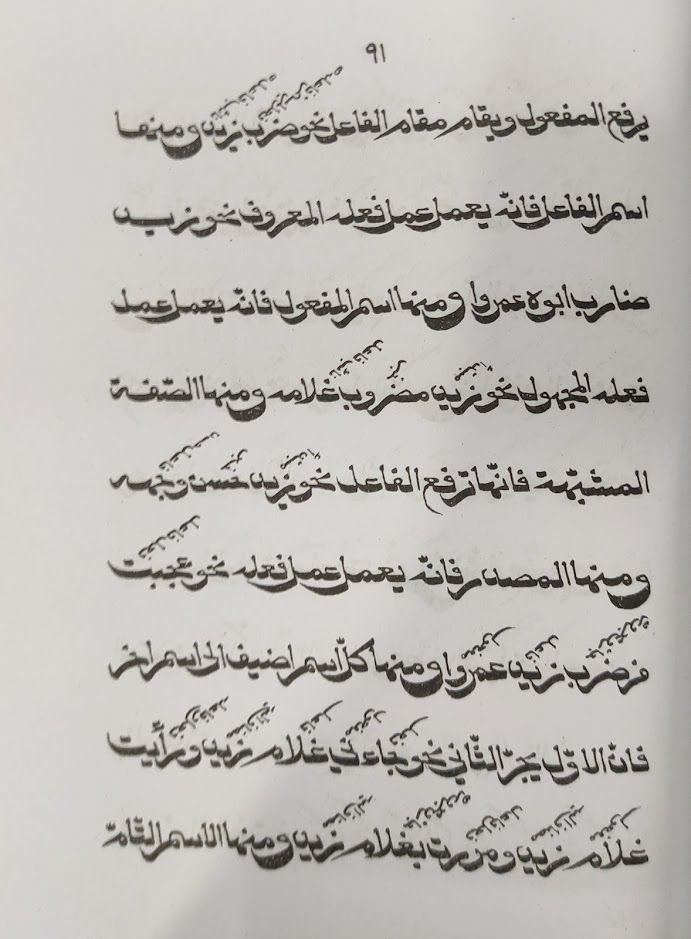 ٩١
يرفع المفعول ويقام مقام الفاعل نحو ضرب زيد ومنها
اسم الفاعل فانّه يعمل عمل فعله المعروف نحو زيد
ضارب ابوه عمروا ومنها اسم المفعول فانّه يعمل عمل
فعله المجهول نحو زيد مضروب غلامه ومنها الصّفة
المشبّهة فانّها ترفع الفاعل نحو زيد حسن وجهه
ومنها المصدر فانّه يعمل عمل فعله نحو عجبت
من ضرب زيد عمروا ومنها كلّ اسم اضيف الى اسم اخر
فانّ الاوّل يجرّ الثّاني نحو جاءني غلام زيد ورأيت
غلام زيد ومررت بغلام زيد ومنها الاسم التّامّ